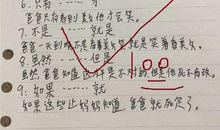 6. 只有……才
爸爸只有看到美女他才会笑。
7. 不是……就是
爸爸一天到晚不是看着美女笑就是笑着看美女。
8. 虽然……但是
虽然,爸爸知道这样是不对的,但是他死不悔改。
100
9. 如果……就
如果这些让妈妈知道,爸爸就死定了。